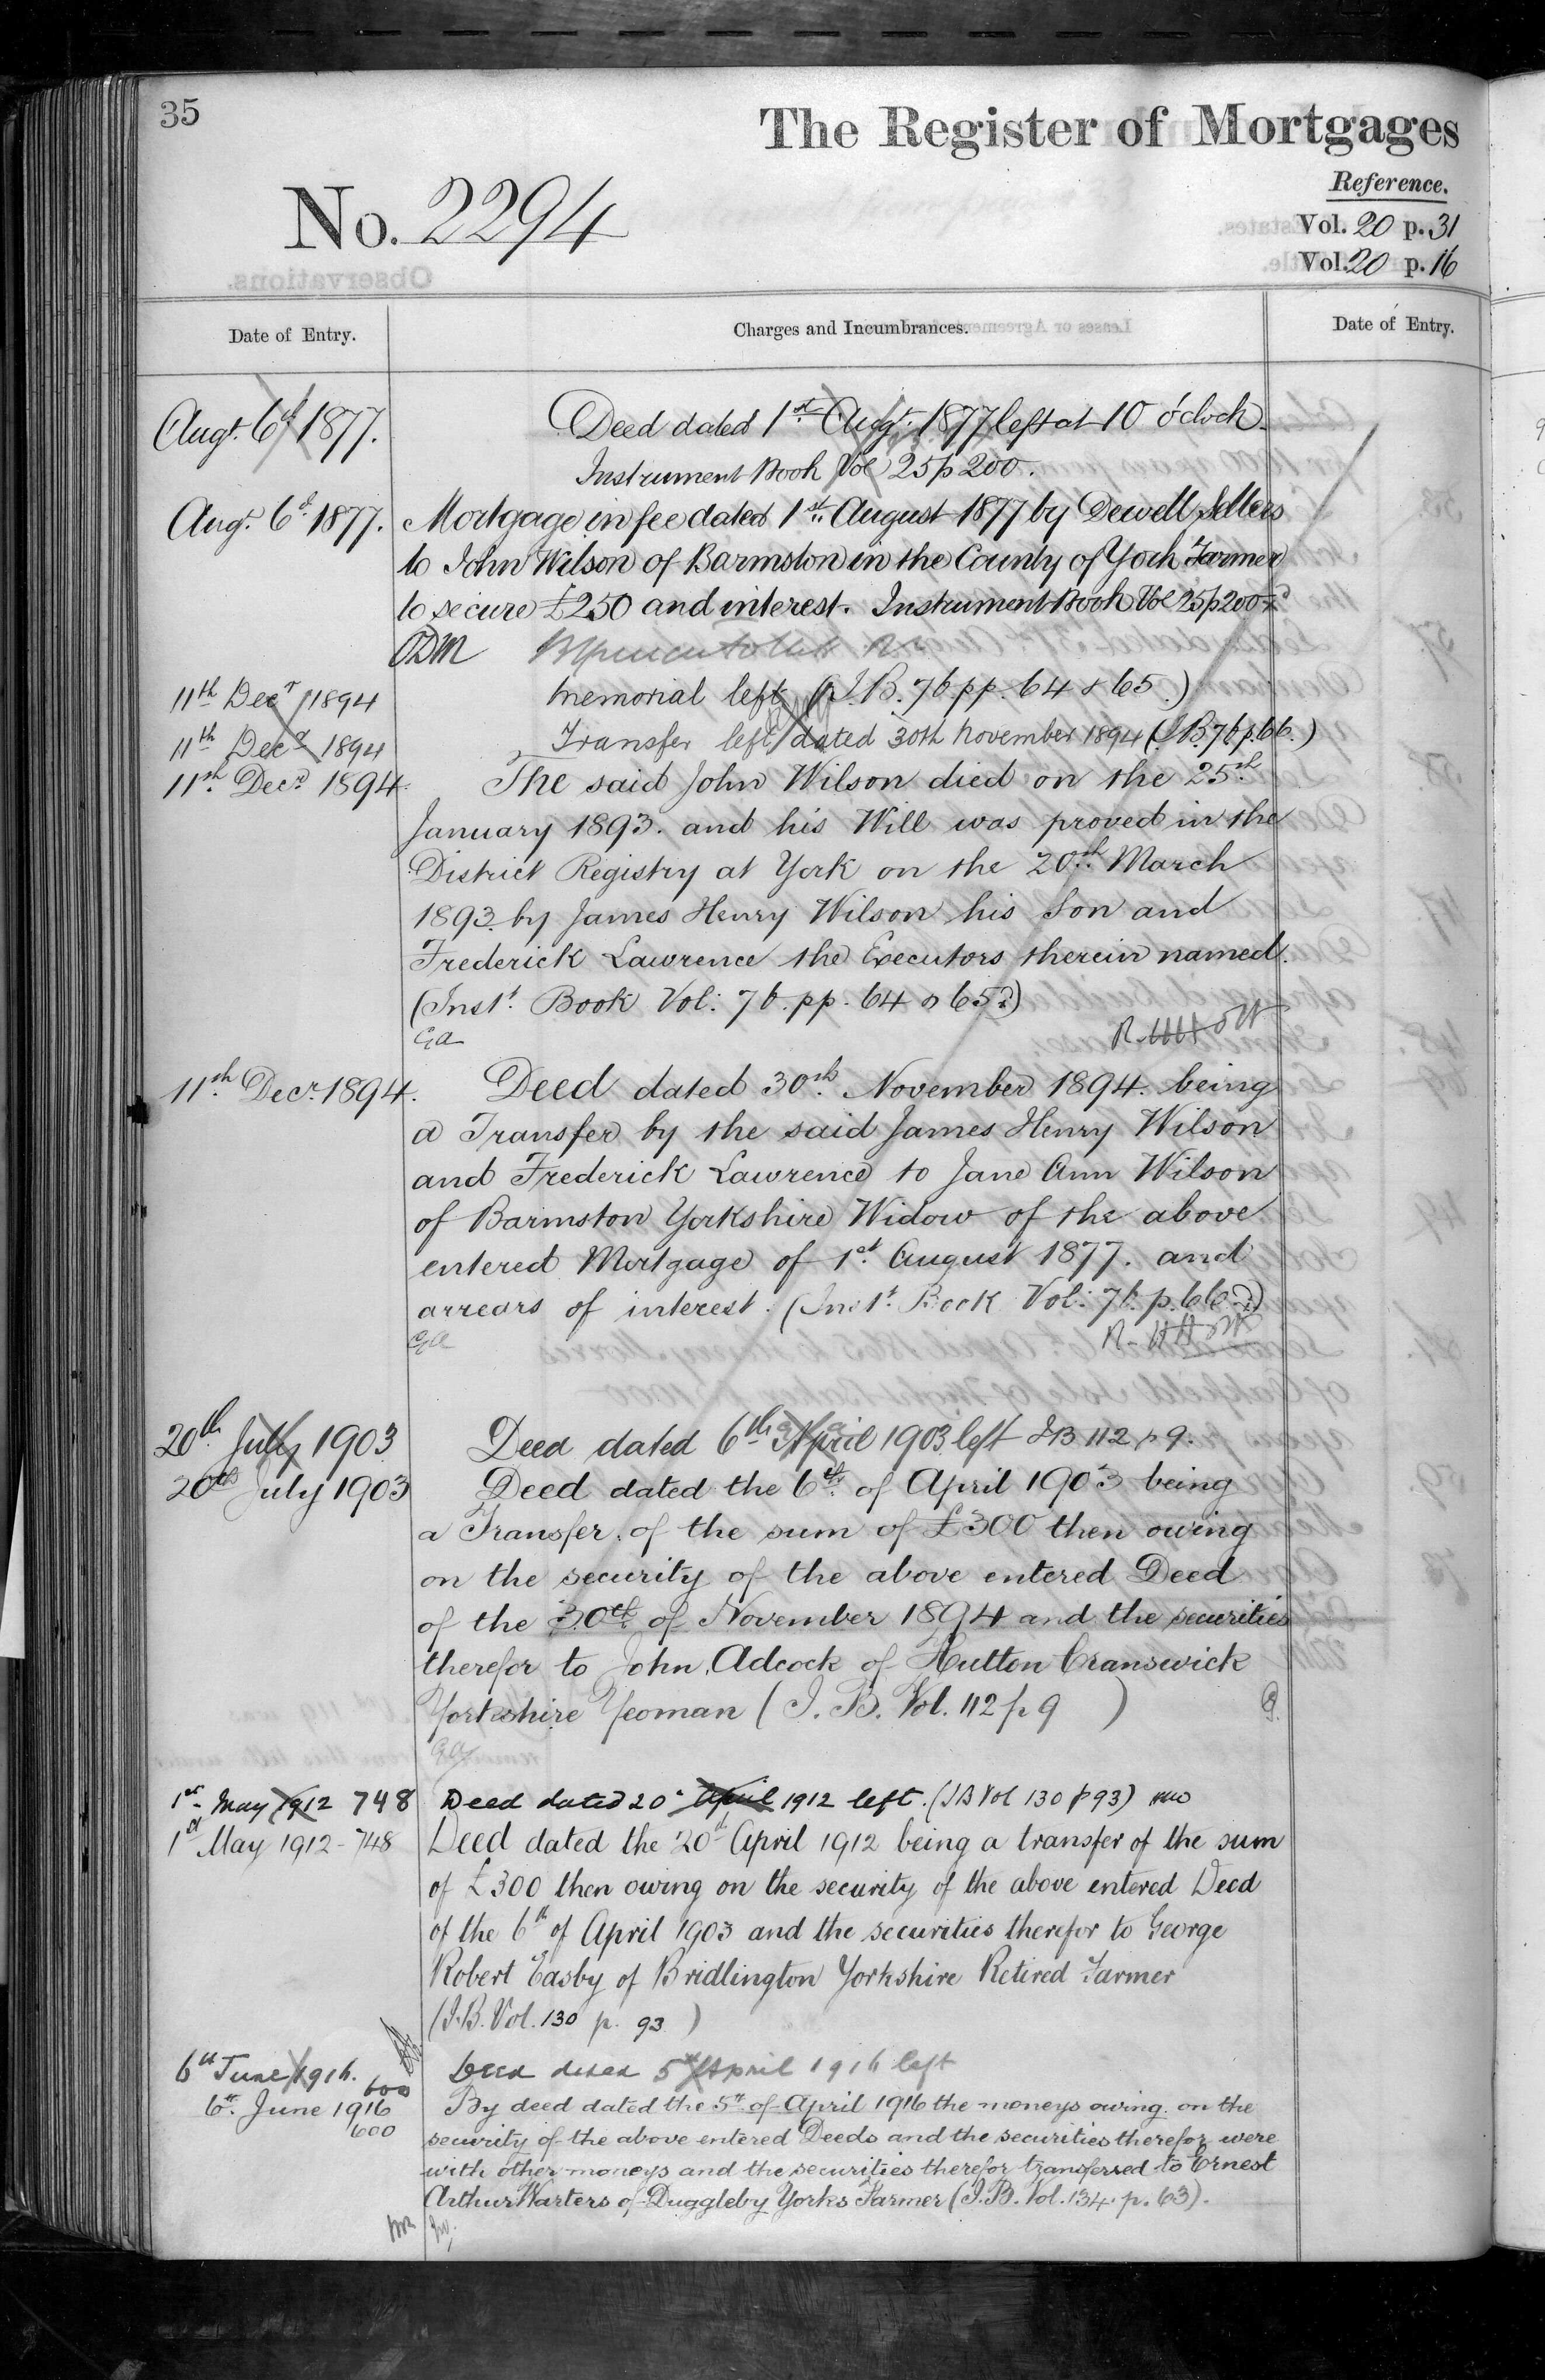 35
The Register of Mortgages
Reference.
No. 2294
Vol. 20 p. 31
Vol. 20 p. 16
Date of Entry.
Charges and Incumbrances.
Date of Entry.
Augt. 6th 1877.
Deed dated 1st Augt. 1877 left at 10 o'clock
Instrument Book Vol 25 p 200.
Augt. 6th 1877.
Mortgage in fee dated 1st August 1877 by Dewell Sellers
to John Wilson of Barmston in the County of York Farmer
to secure £250 and interest. Instrument Book Vol 25 p 200
ODM
11th Decr 1894
Memorial left (I.B. 76 pp. 64 & 65.)
11th Decr 1894
Transfer left dated 30th November 1894 (I.B. 76 p. 66.)
11th Decr 1894.
The said John Wilson died on the 25th
January 1893. and his Will was proved in the
District Registry at York on the 20th March
1893. by James Henry Wilson his Son and
Frederick Lawrence the Executors therein named.
(Inst. Book Vol: 76. pp. 64 & 65.)
11th Decr 1894.
Deed dated 30th November 1894. being
a Transfer by the said James Henry Wilson
and Frederick Lawrence to Jane Ann Wilson
of Barmston Yorkshire Widow of the above
entered Mortgage of 1st August 1877. and
arrears of interest. (Inst. Book Vol: 76. p. 66.)
20th July 1903
Deed dated 6th April 1903 left IB 112 p 9.
20th July 1903
Deed dated the 6th of April 1903 being
a Transfer of the sum of £300 then owing
on the security of the above entered Deed
of the 30th of November 1894 and the securities
therefor to John Adcock of Hutton Cranswick
Yorkshire Yeoman (I.B. Vol. 112 p 9 )
1st May 1912 748
Deed dated 20th April 1912 left. (IB Vol 130 p 93)
1st May 1912 - 748
Deed dated the 20th April 1912 being a transfer of the sum
of £300 then owing on the security of the above entered Deed
of the 6th of April 1903 and the securities therefor to George
Robert Easby of Bridlington Yorkshire Retired Farmer
(I.B. Vol. 130 p. 93 )
6th June 1916.
600
Deed dated 5th April 1916 left
6th June 1916
600
By deed dated the 5th of April 1916 the moneys owing on the
security of the above entered Deeds and the securities therefor were
with other moneys and the securities therefor transferred to Ernest
Arthur Warters of Duggleby Yorks Farmer (I.B. Vol. 134. p. 63).